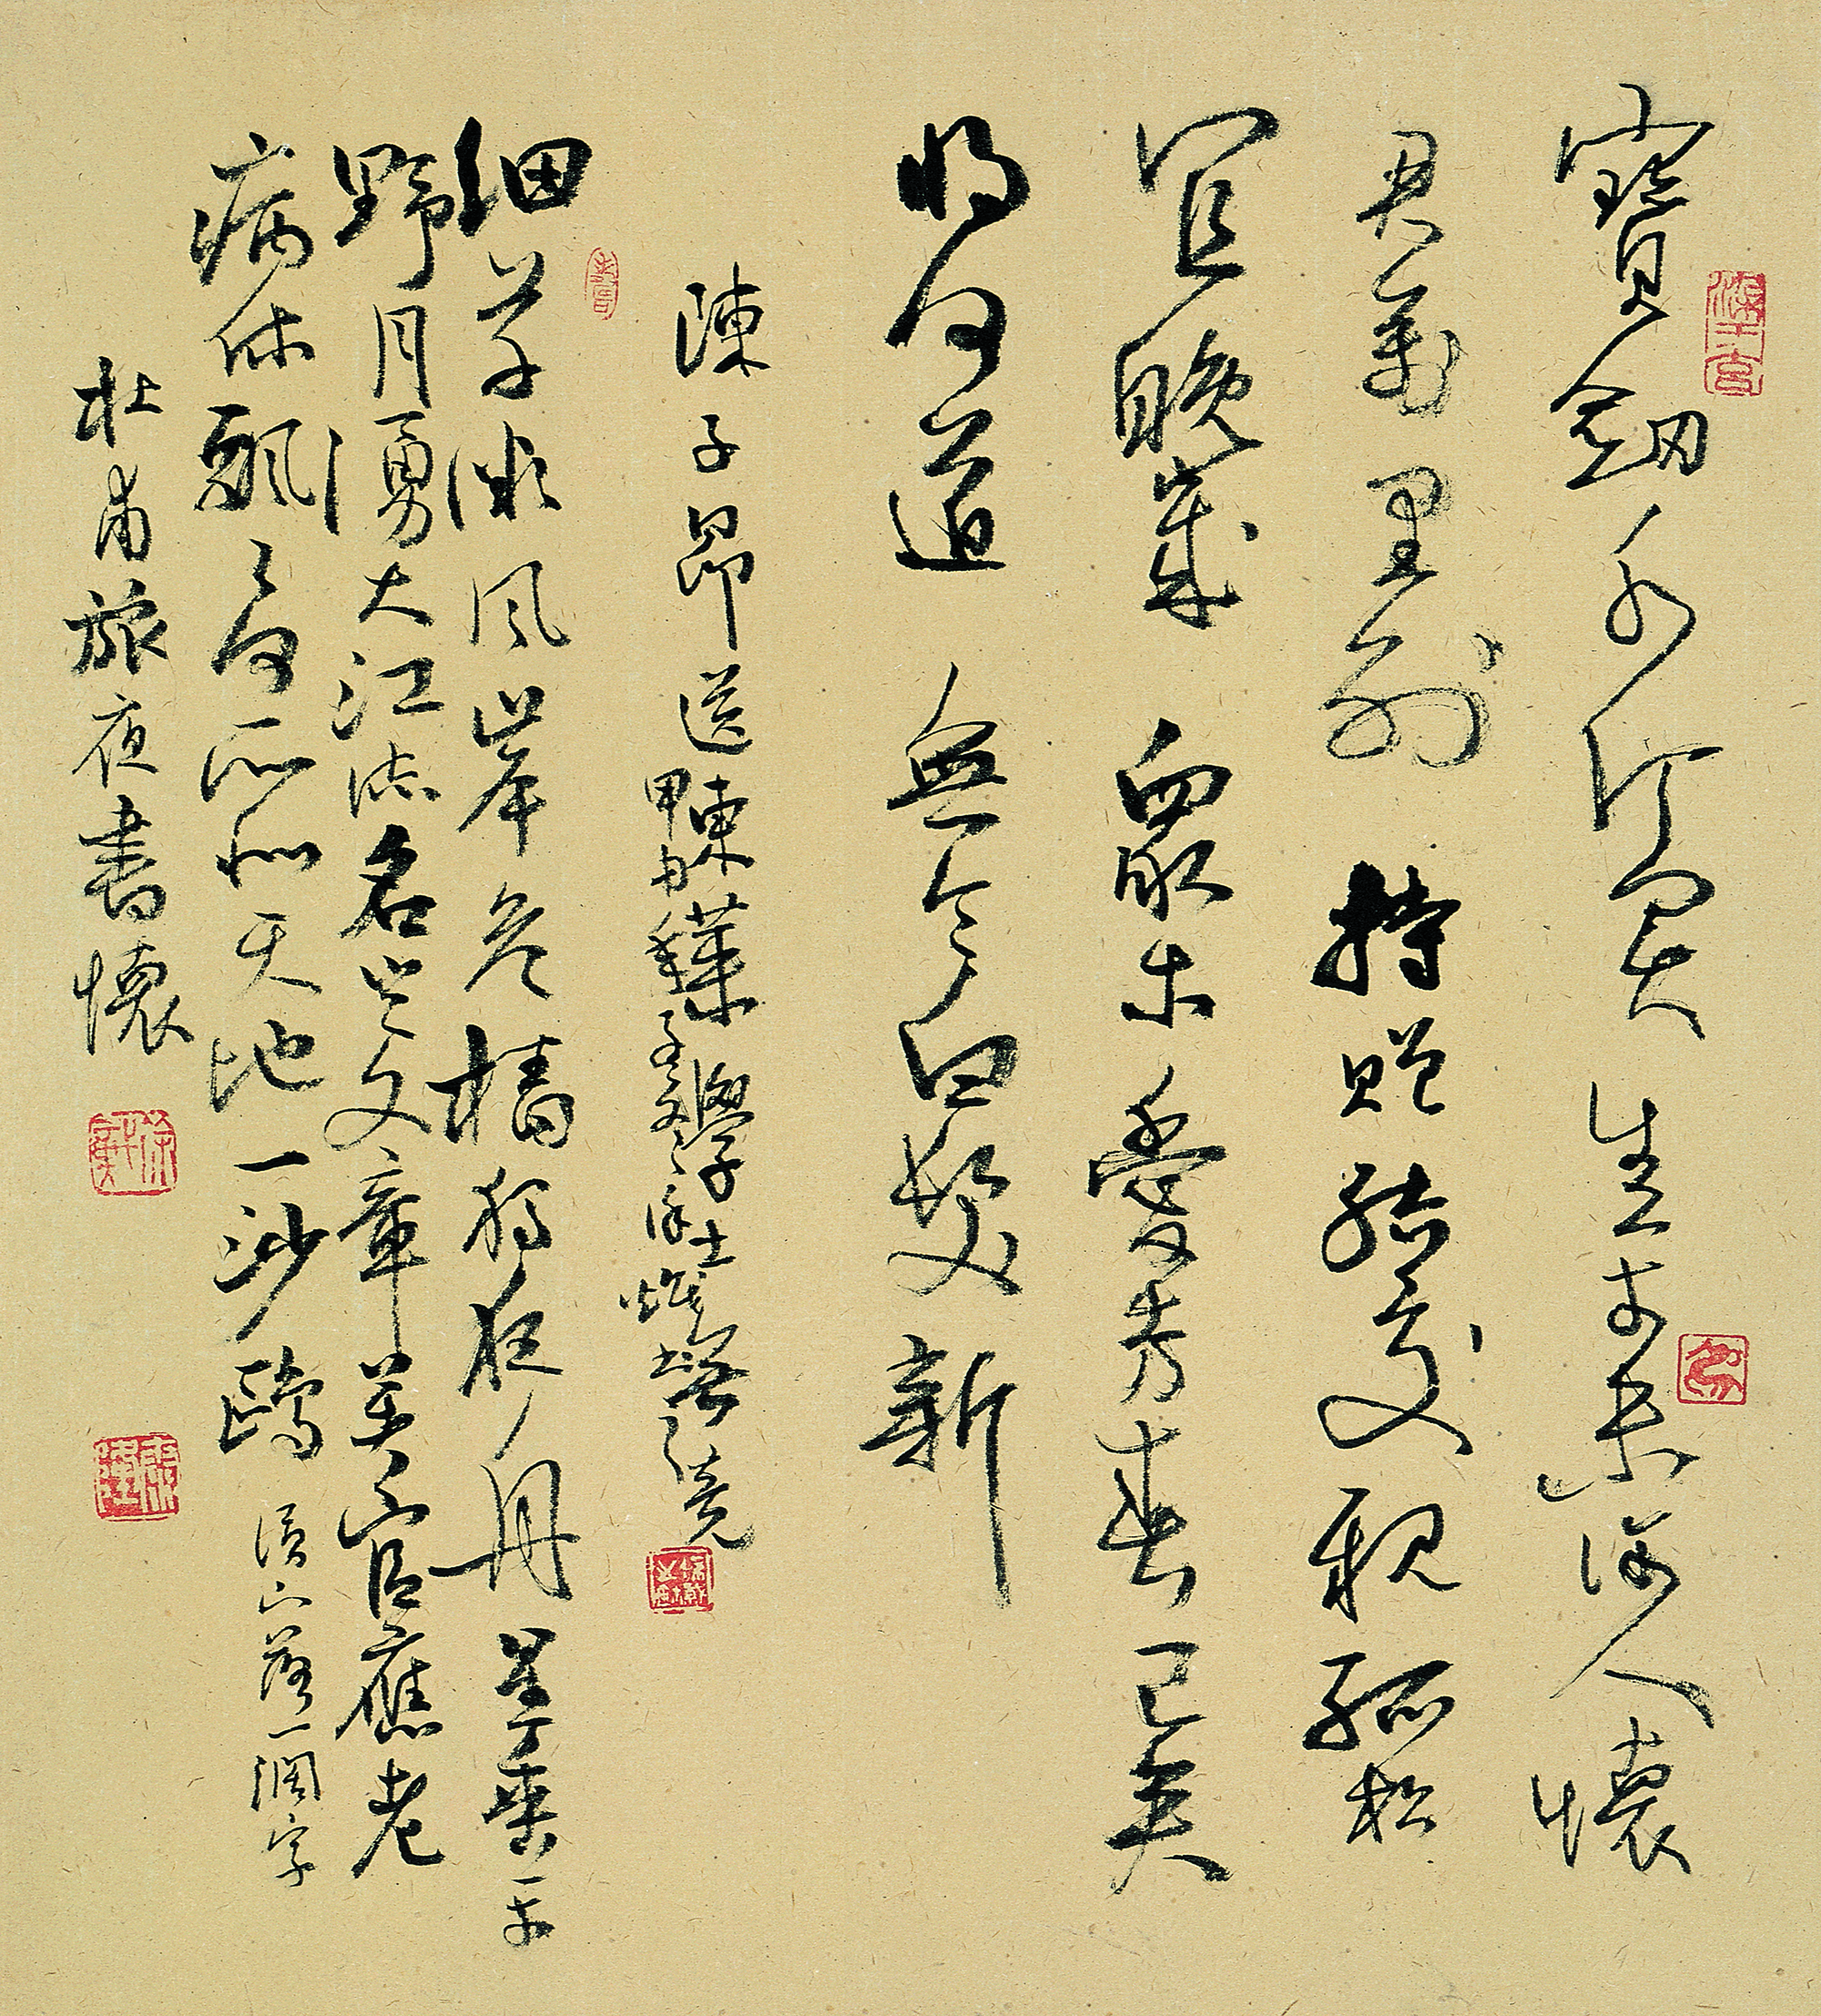 寶劍千金買生平未許人懷
君萬里別持贈結交親孤松
宜晚歲眾木愛芳春已矣
將何道無令白髮新
陳子昂送東萊學士無競
甲申孟冬
細草微風岸危檣獨夜舟星垂平
野月湧大江流名豈文章著官應老
病休飄飄何所似天地一沙鷗 山落一濶字
杜甫旅夜書懷